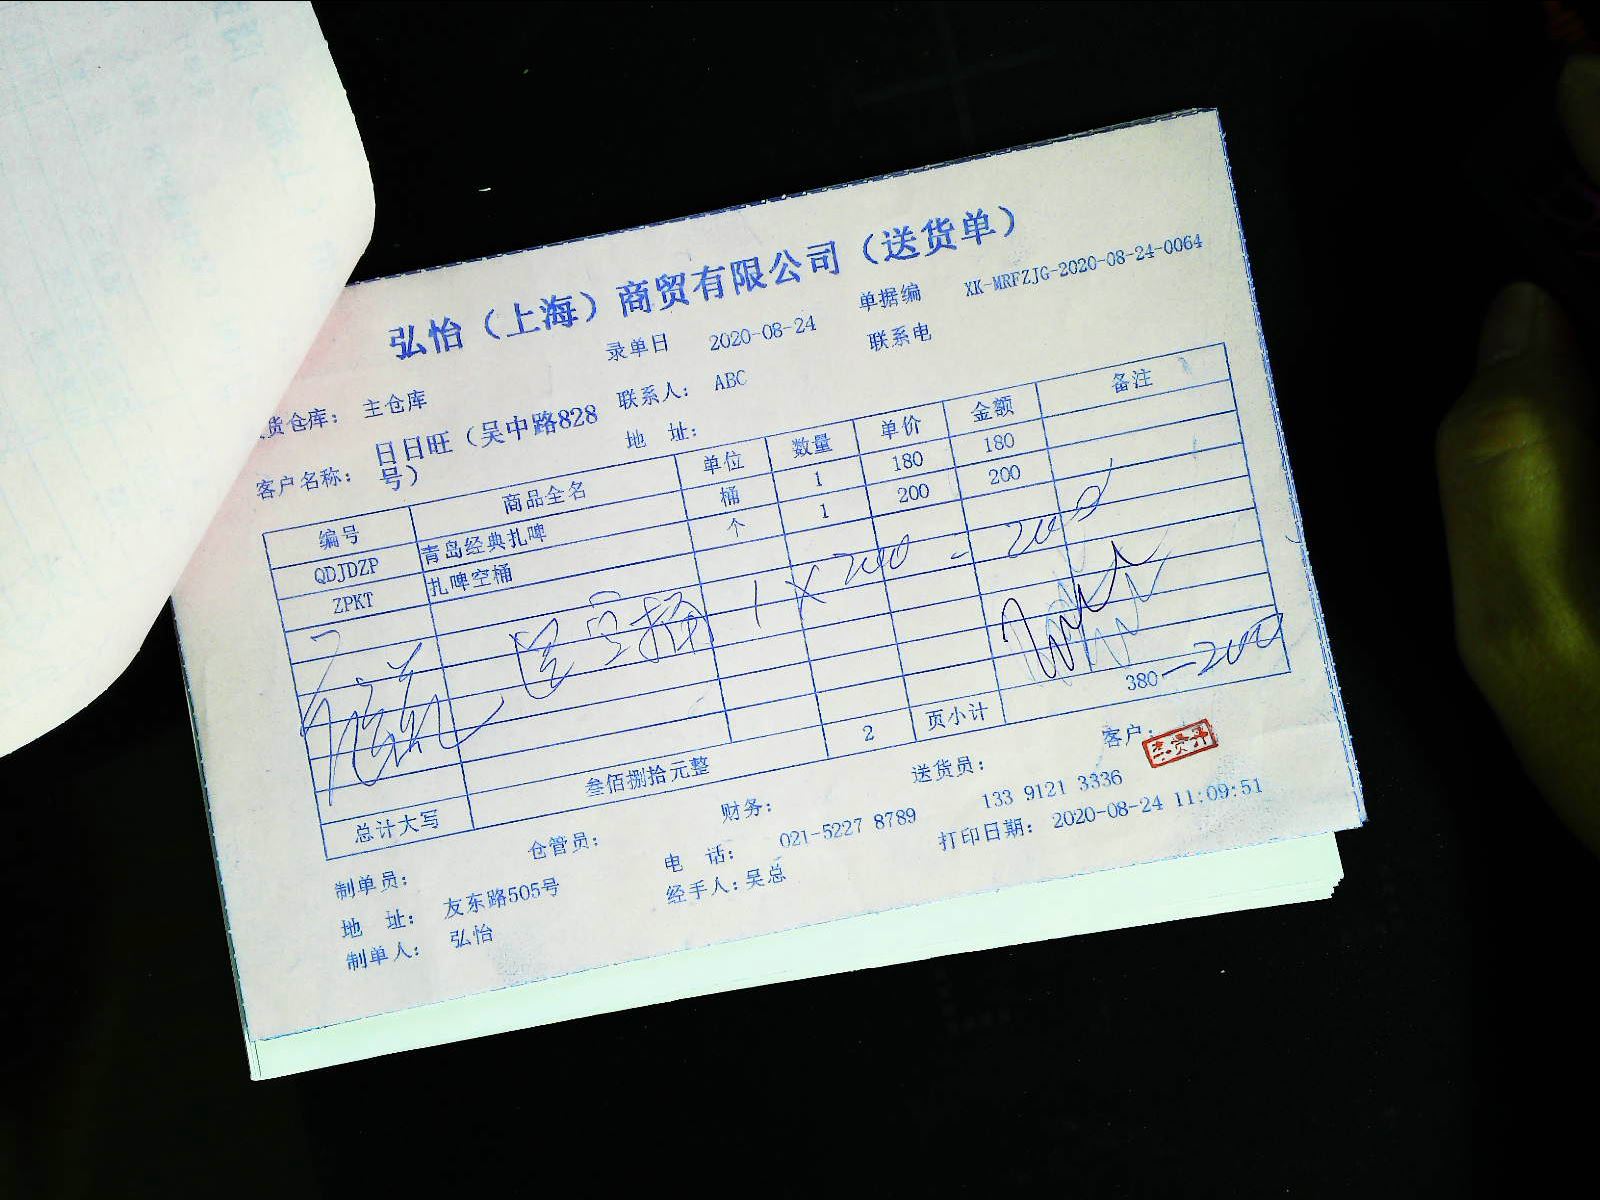 弘怡（上海）商贸有限公司（送货单）
录单日 2020-08-24 单据编 XK-MRFZJG-2020-08-24-0064
货仓库： 主仓库 联系人： ABC 联系电
客户名称： 日日旺（吴中路828号） 地 址：
编号 商品全名 单位 数量 单价 金额 备注
QDJDZP 青岛经典扎啤 桶 1 180 180
ZPKT 扎啤空桶 个 1 200 200
空桶 1×200=200
380-200
总计大写 叁佰捌拾元整 2 页小计
制单员： 仓管员： 财务： 送货员： 客户：
地 址： 友东路505号 电 话： 021-5227 8789 133 9121 3336
制单人： 弘怡 经手人：吴总 打印日期： 2020-08-24 11:09:51